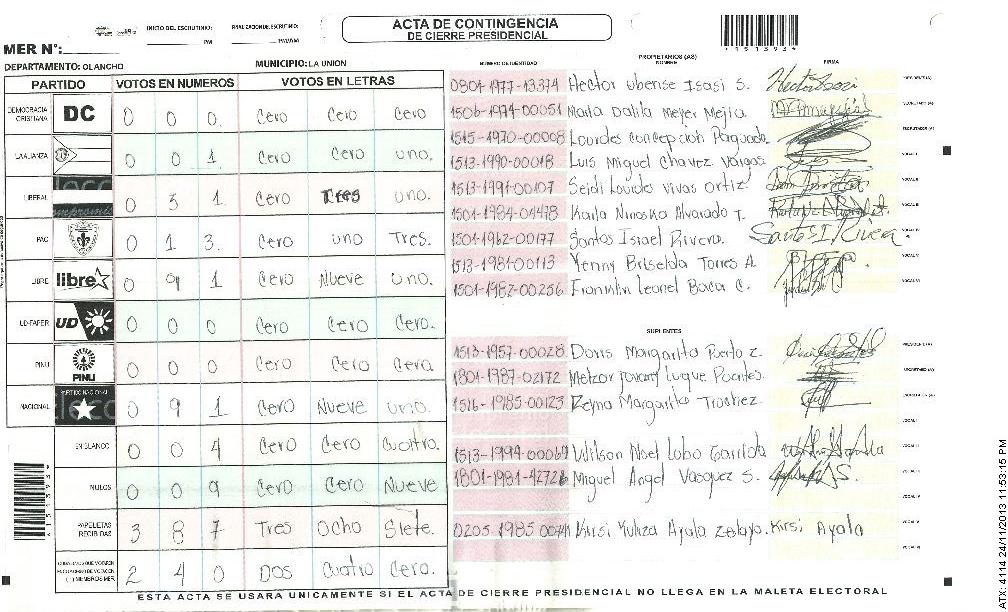 ACTA DE CONTINGENCIA
DE CIERRE PRESIDENCIAL
INICIO DEL ESCRUTINIO: PM
FINALIZACION DE ESCRUTINIO:
MER N°:
*15139*
DEPARTAMENTO: OLANCHO MUNICIPIO: LA UNION
PARTIDO VOTOS EN NUMEROS VOTOS EN LETRAS
DEMOCRACIA CRISTIANA DC 0 0 0. Cero Cero Cero
LA ALIANZA 0 0 1 Cero Cero uno.
LIBERAL 0 3 1. Cero Tres uno.
PAC 0 1 3. Cero uno Tres.
LIBRE libre 0 9 1 Cero Nueve Uno.
UD-FAPER UD 0 0 0 Cero Cero Cero.
PINU PINU 0 0 0 Cero Cero Cero
NACIONAL 0 9 1 Cero Nueve uno.
EN BLANCO 0 0 4 Cero Cero Cuatro.
NULOS 0 0 9 Cero Cero Nueve
PAPELETAS RECIBIDAS 3 8 7 Tres Ocho Siete.
2 4 0 Dos Cuatro Cero.
NUMERO DE IDENTIDAD PROPIETARIOS (AS) NOMBRE FIRMA
0801-1977-13374 Hector Ubense Isasi S.
1506-1974-00051 Maria Dalila Meyer Mejia
1515-1970-00008 Lourdes Concepcion Paguada
1513-1990-00018 Luis Miguel Chavez Vargas
1513-1991-00107 Seidi Lourdes Vivas Ortiz
1501-1984-04478 Karla Ninoska Alvarado T.
1501-1962-00177 Santos Israel Rivera. Santos I Rivera
1513-1981-00113 Yenny Briselda Torres A.
1501-1982-00256 Franklin Leonel Baca C.
SUPLENTES
1513-1957-00028 Doris Margarita Puerto Z.
1801-1987-02172
1516-1985-00123 Reyna Margarita Trochez
1513-1994-00067 Wilson Noel Lobo Garrido
1801-1981-42728 Miguel Angel Vasquez S.
0205-1985 Kirsi Yuliza Ayala Zelaya. Kirsi Ayala
ESTA ACTA SE USARA UNICAMENTE SI EL ACTA DE CIERRE PRESIDENCIAL NO LLEGA EN LA MALETA ELECTORAL
ATX 4114 24/11/2013 11:53:15 PM